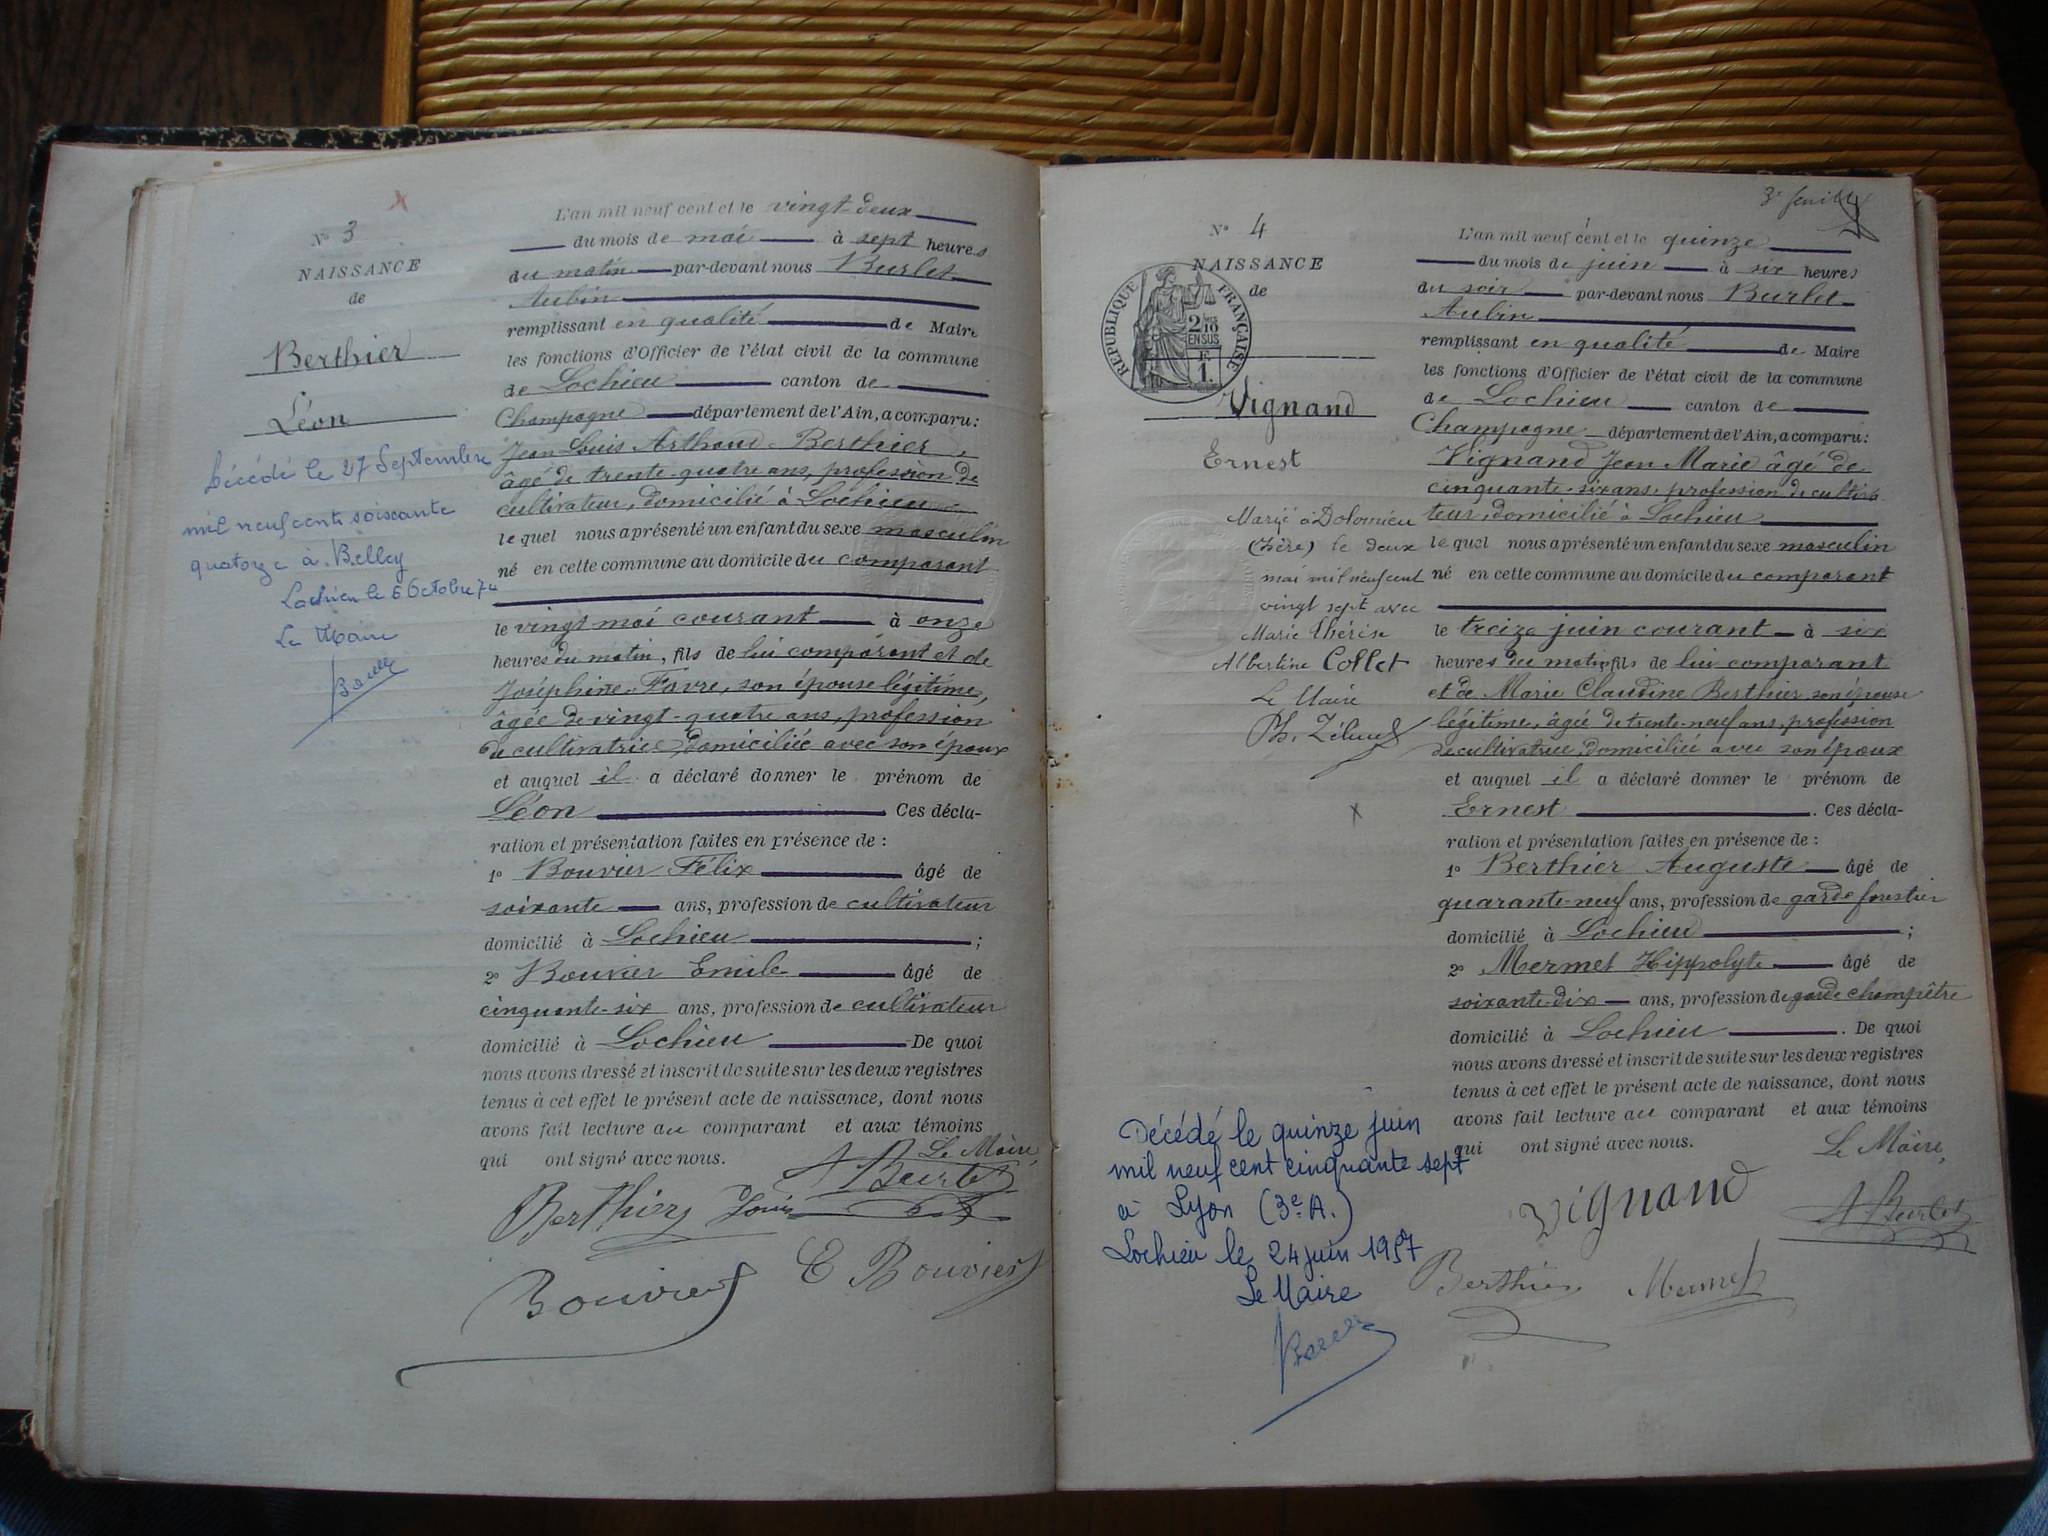 N° 3
NAISSANCE
de
Berthier
Léon
Décédé le 27 Septembre
mil neuf cent soixante
quatorze à Belley
Lochieu le 6 Octobre 74
Le Maire
L'an mil neuf cent et le vingt-deux
du mois de mai à sept heures
du matin par-devant nous Burlet
Aubin
remplissant en qualité de Maire
les fonctions d'Officier de l'état civil de la commune
de Lochieu canton de
Champagne département de l'Ain, a comparu:
Jean Louis Arthaud Berthier
âgé de trente-quatre ans, profession de
cultivateur, domicilié à Lochieu
lequel nous a présenté un enfant du sexe masculin
né en cette commune au domicile du comparant
le vingt mai courant à onze
heures du matin, fils de lui comparant et de
Joséphine Favre, son épouse légitime,
âgée de vingt-quatre ans, profession
de cultivatrice, domiciliée avec son époux
et auquel il a déclaré donner le prénom de
Léon Ces décla-
ration et présentation faites en présence de :
1° Bouvier Félix âgé de
soixante ans, profession de cultivateur
domicilié à Lochieu ;
2° Bouvier Emile âgé de
cinquante-six ans, profession de cultivateur
domicilié à Lochieu De quoi
nous avons dressé et inscrit de suite sur les deux registres
tenus à cet effet le présent acte de naissance, dont nous
avons fait lecture au comparant et aux témoins
qui ont signé avec nous.
Le Maire,
A Burlet
Berthier Louis
Bouvier
E Bouvier
3e feuillet
N° 4
NAISSANCE
de
RÉPUBLIQUE FRANÇAISE
2/10
EN SUS
F.
1.
Vignand
Ernest
Marié à Dolomieu
(Isère) le deux
mai mil neuf cent
vingt sept avec
Marie Thérèse
Albertine Collet
Le Maire
L'an mil neuf cent et le quinze
du mois de juin à six heures
du soir par-devant nous Burlet
Aubin
remplissant en qualité de Maire
les fonctions d'Officier de l'état civil de la commune
de Lochieu canton de
Champagne département de l'Ain, a comparu:
Vignand Jean Marie âgé de
cinquante-six ans, profession de cultiva
teur, domicilié à Lochieu
lequel nous a présenté un enfant du sexe masculin
né en cette commune au domicile du comparant
le treize juin courant à six
heures du matin fils de lui comparant
et de Marie Claudine Berthier son épouse
légitime, âgée de trente-neuf ans, profession
de cultivatrice, domiciliée avec son époux
et auquel il a déclaré donner le prénom de
Ernest . Ces décla-
ration et présentation faites en présence de :
1° Berthier Auguste âgé de
quarante-neuf ans, profession de garde forestier
domicilié à Lochieu ;
2° Mermet Hippolyte âgé de
soixante-dix ans, profession de garde champêtre
domicilié à Lochieu . De quoi
nous avons dressé et inscrit de suite sur les deux registres
tenus à cet effet le présent acte de naissance, dont nous
avons fait lecture au comparant et aux témoins
qui ont signé avec nous.
Le Maire,
Vignand
A Burlet
Berthier Mermet
Décédé le quinze juin
mil neuf cent cinquante sept
à Lyon (3e A.)
Lochieu le 24 juin 1957
Le Maire